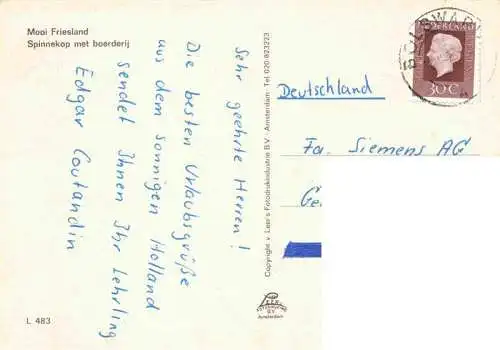 Mooi Friesland
Spinnekop met boerderij
Sehr geehrte Herren!
Die besten Urlaubsgrüße
aus dem sonnigen Holland
sendet Ihnen Ihr Lehrling
Edgar Coutandin
L 483
Copyright v. Leer's Fotodrukindustrie B.V. - Amsterdam - Tel. 020-823223
Amsterdam
BOLSWARD
NEDERLAND
30 C
Deutschland
Fa. Siemens AG
Ge